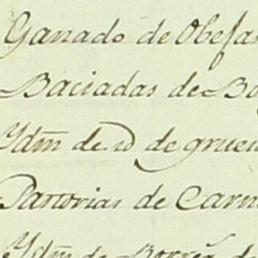 Ganado de Obejas
Baciadas de Bo
Ydm de id de grue
Parorias de Carn
Ydm de Borreg de